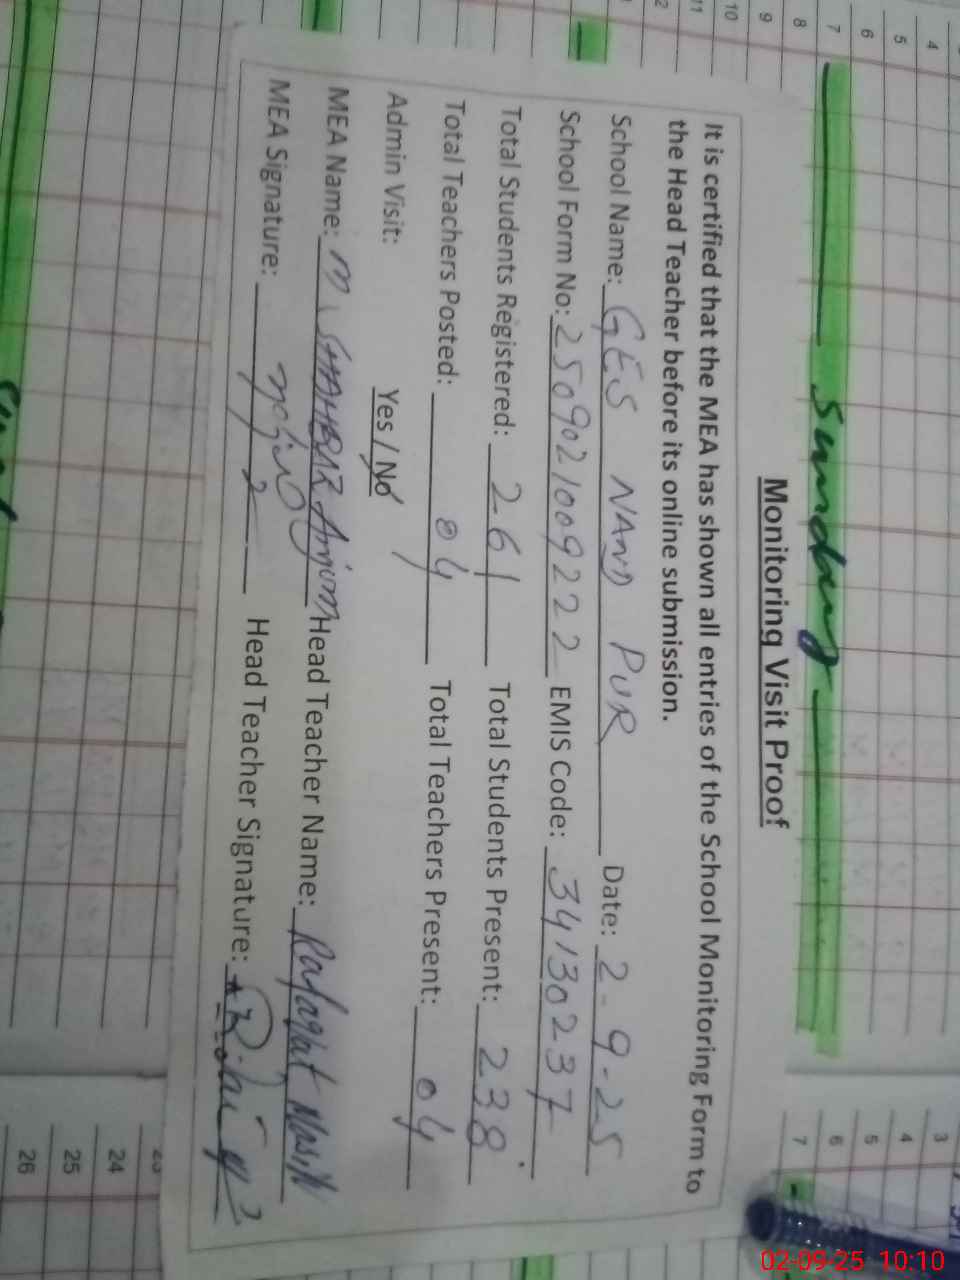 Sunday
Monitoring Visit Proof
It is certified that the MEA has shown all entries of the School Monitoring Form to
the Head Teacher before its online submission.
School Name: GES NAND PUR Date: 2-9-25
School Form No: 2509021009222 EMIS Code: 34130237
Total Students Registered: 261 Total Students Present: 238
Total Teachers Posted: 04 Total Teachers Present: 04
Admin Visit: Yes / No
MEA Name: M. Anjum Head Teacher Name: Rafaqat Masih
MEA Signature: Head Teacher Signature:
4
5
6
7
8
9
10
11
3
4
5
6
7
24
25
26
02-09-25 10:10